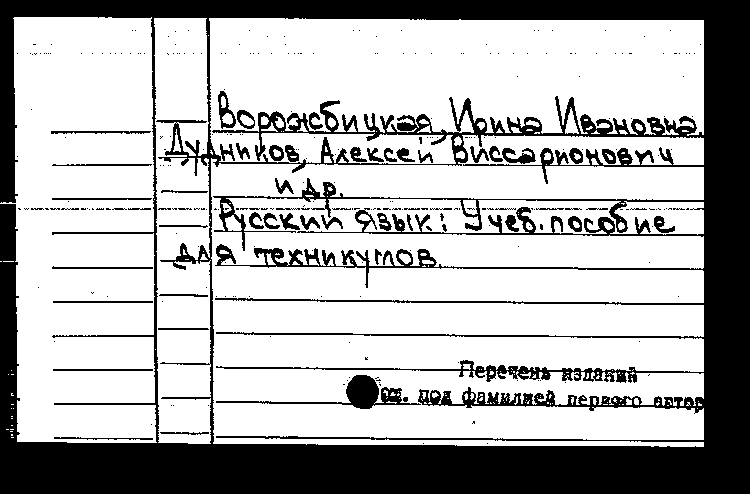 Ворожбицкая, Ирина Ивановна.
Дудников, Алексей Виссарионович
и др.
Русский язык: Учеб. пособие
для техникумов.
Перечень изданий
см. под фамилией первого автор